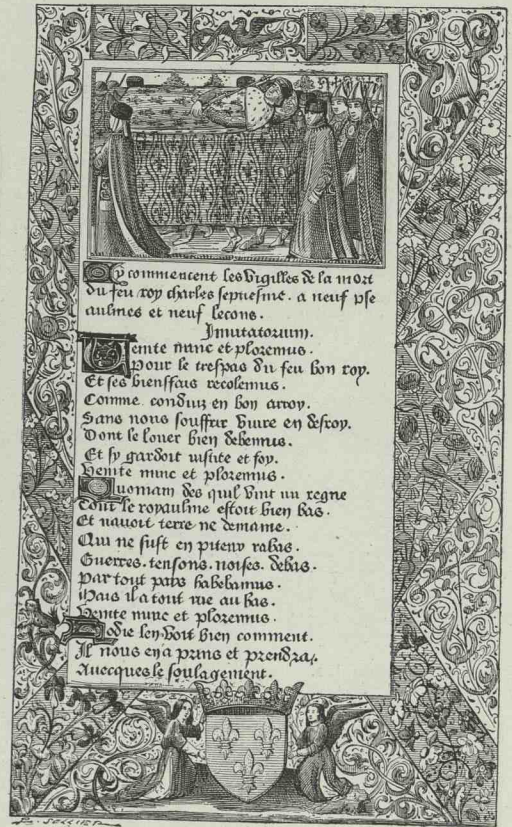 Cy commencent les Vigilles de la mort
du feu roy charles septiesme. a neuf pse
aulmes et neuf lecons.
Inuitatorium.
Venite nunc et ploremus.
Pour le trespas du feu bon roy.
Et ses bienffais recolemus.
Comme conduiz en bon arroy.
Sans nous souffrir viure en desroy.
Dont le louer bien debemus.
Et sy gardoit iustice et foy.
Venite nunc et ploremus.
Quoniam des quil vint un regne
Tout le royaulme estoit bien bas.
Et nauoit terre ne demaine.
Qui ne fust en piteux rabas.
Guerres. tensons. noises. debas.
Par tout pais habebamus.
Mais il a tout rue au bas.
Venite nunc et ploremus.
Hodie len voit bien comment.
Il nous en a prins et prendra.
Auecques le soulagement.